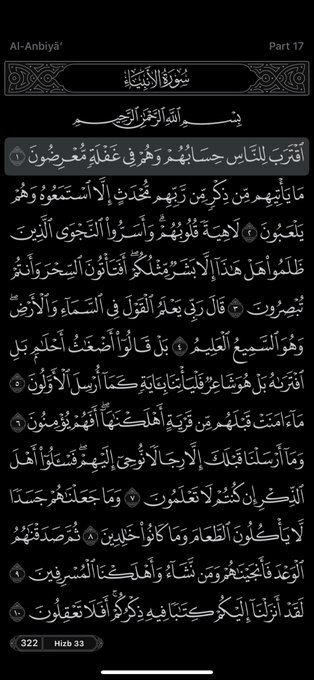 Al-Anbiyā’
Part 17
سُورَةُ الأَنبِيَاءِ
بِسْمِ ٱللَّهِ ٱلرَّحْمَٰنِ ٱلرَّحِيمِ
ٱقْتَرَبَ لِلنَّاسِ حِسَابُهُمْ وَهُمْ فِى غَفْلَةٍ مُّعْرِضُونَ ١
مَا يَأْتِيهِم مِّن ذِكْرٍ مِّن رَّبِّهِم مُّحْدَثٍ إِلَّا ٱسْتَمَعُوهُ وَهُمْ
يَلْعَبُونَ ٢ لَاهِيَةً قُلُوبُهُمْ ۗ وَأَسَرُّوا۟ ٱلنَّجْوَى ٱلَّذِينَ
ظَلَمُوا۟ هَلْ هَٰذَآ إِلَّا بَشَرٌ مِّثْلُكُمْ ۖ أَفَتَأْتُونَ ٱلسِّحْرَ وَأَنتُمْ
تُبْصِرُونَ ٣ قَالَ رَبِّى يَعْلَمُ ٱلْقَوْلَ فِى ٱلسَّمَآءِ وَٱلْأَرْضِ ۖ
وَهُوَ ٱلسَّمِيعُ ٱلْعَلِيمُ ٤ بَلْ قَالُوٓا۟ أَضْغَٰثُ أَحْلَٰمٍۭ بَلِ
ٱفْتَرَىٰهُ بَلْ هُوَ شَاعِرٌ فَلْيَأْتِنَا بِـَٔايَةٍ كَمَآ أُرْسِلَ ٱلْأَوَّلُونَ ٥
مَآ ءَامَنَتْ قَبْلَهُم مِّن قَرْيَةٍ أَهْلَكْنَٰهَآ ۖ أَفَهُمْ يُؤْمِنُونَ ٦
وَمَآ أَرْسَلْنَا قَبْلَكَ إِلَّا رِجَالًا نُّوحِىٓ إِلَيْهِمْ ۖ فَسْـَٔلُوٓا۟ أَهْلَ
ٱلذِّكْرِ إِن كُنتُمْ لَا تَعْلَمُونَ ٧ وَمَا جَعَلْنَٰهُمْ جَسَدًا
لَّا يَأْكُلُونَ ٱلطَّعَامَ وَمَا كَانُوا۟ خَٰلِدِينَ ٨ ثُمَّ صَدَقْنَٰهُمُ
ٱلْوَعْدَ فَأَنجَيْنَٰهُمْ وَمَن نَّشَآءُ وَأَهْلَكْنَا ٱلْمُسْرِفِينَ ٩
لَقَدْ أَنزَلْنَآ إِلَيْكُمْ كِتَٰبًا فِيهِ ذِكْرُكُمْ ۖ أَفَلَا تَعْقِلُونَ ١٠
322 Hizb 33